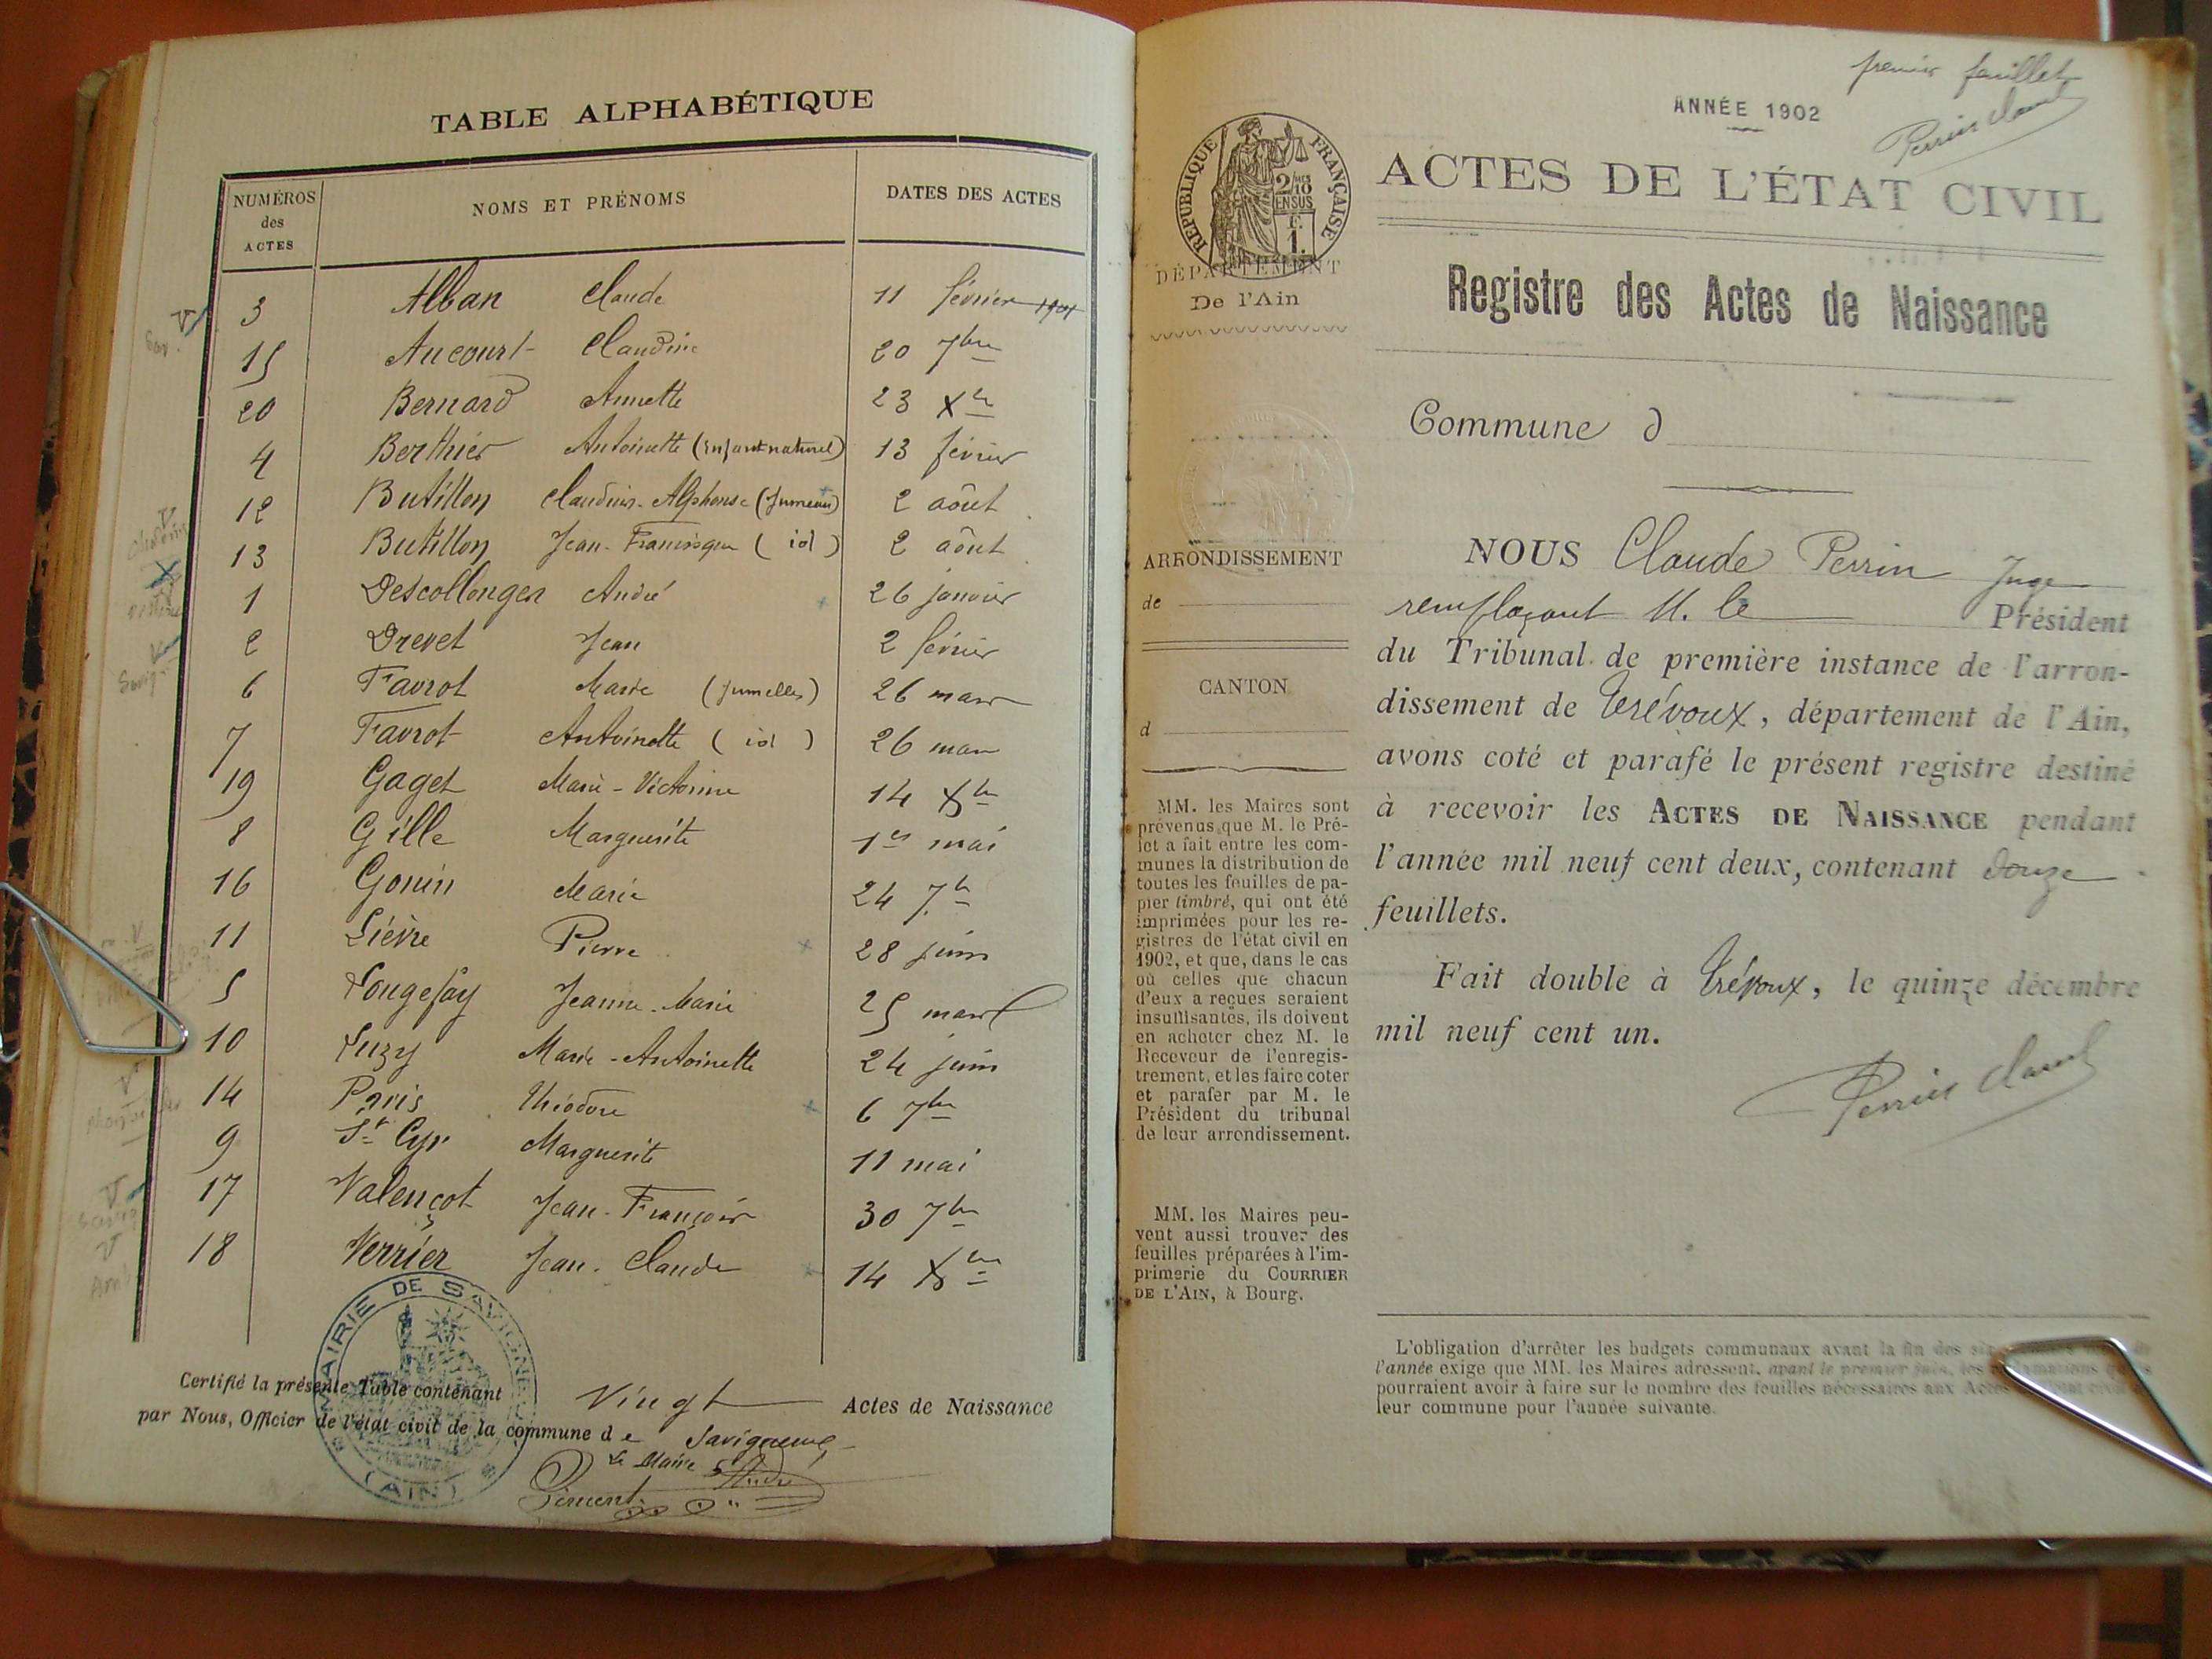 TABLE ALPHABÉTIQUE
NUMÉROS des ACTES NOMS ET PRÉNOMS DATES DES ACTES
3 Alban Claude 11 février 1901
15 Aucourt Claudine 20 7bre
20 Bernard Annette 23 Xbre
4 Berthier Antoinette (enfant naturel) 13 février
12 Butillon Claudius-Alphonse (Jumeau) 2 aôut
13 Butillon Jean-Francisque ( id ) 2 aôut
1 Descollonges André 26 janvier
2 Drevet Jean 2 février
6 Favrot Marie (jumelles) 26 mars
7 Favrot Antoinette ( id ) 26 mars
19 Gaget Marie-Victorine 14 Xbre
8 Gille Marguerite 1er mai
16 Gonin Marie 24 7bre
11 Lièvre Pierre 28 juin
5 Longefay Jeanne-Marie 25 mars
10 Luzy Marie-Antoinette 24 juin
14 Paris Théodore 6 7bre
9 St Cyr Marguerite 11 mai
17 Valençot Jean-François 30 7bre
18 Verrier Jean-Claude 14 Xbre
Certifié la présente Table contenant Vingt Actes de Naissance
par Nous, Officier de l'état civil de la commune de Savigneux
Le Maire
MAIRIE DE SAVIGNEUX
(AIN)
premier feuillet
Perrin Claude
ANNÉE 1902
RÉPUBLIQUE FRANÇAISE
2/10 MES
EN SUS
F.
1.
ACTES DE L'ÉTAT CIVIL
DÉPARTEMENT
De l'Ain
Registre des Actes de Naissance
Commune d
ARRONDISSEMENT
de
CANTON
d
NOUS Claude Perrin Juge
remplaçant M. le Président
du Tribunal de première instance de l'arron-
dissement de Trévoux, département de l'Ain,
avons coté et parafé le présent registre destiné
à recevoir les ACTES DE NAISSANCE pendant
l'année mil neuf cent deux, contenant douze
feuillets.
Fait double à Trévoux, le quinze décembre
mil neuf cent un.
Perrin Claude
MM. les Maires sont
prévenus que M. le Pré-
fet a fait entre les com-
munes la distribution de
toutes les feuilles de pa-
pier timbré, qui ont été
imprimées pour les re-
gistres de l'état civil en
1902, et que, dans le cas
où celles que chacun
d'eux a reçues seraient
insuffisantes, ils doivent
en acheter chez M. le
Receveur de l'enregis-
trement, et les faire coter
et parafer par M. le
Président du tribunal
de leur arrondissement.
MM. les Maires peu-
vent aussi trouver des
feuilles préparées à l'im-
primerie du COURRIER
DE L'AIN, à Bourg.
L'obligation d'arrêter les budgets communaux avant la fin des
l'année exige que MM. les Maires adressent, avant le premier juin, les
pourraient avoir à faire sur le nombre des feuilles nécessaires aux
leur commune pour l'année suivante.